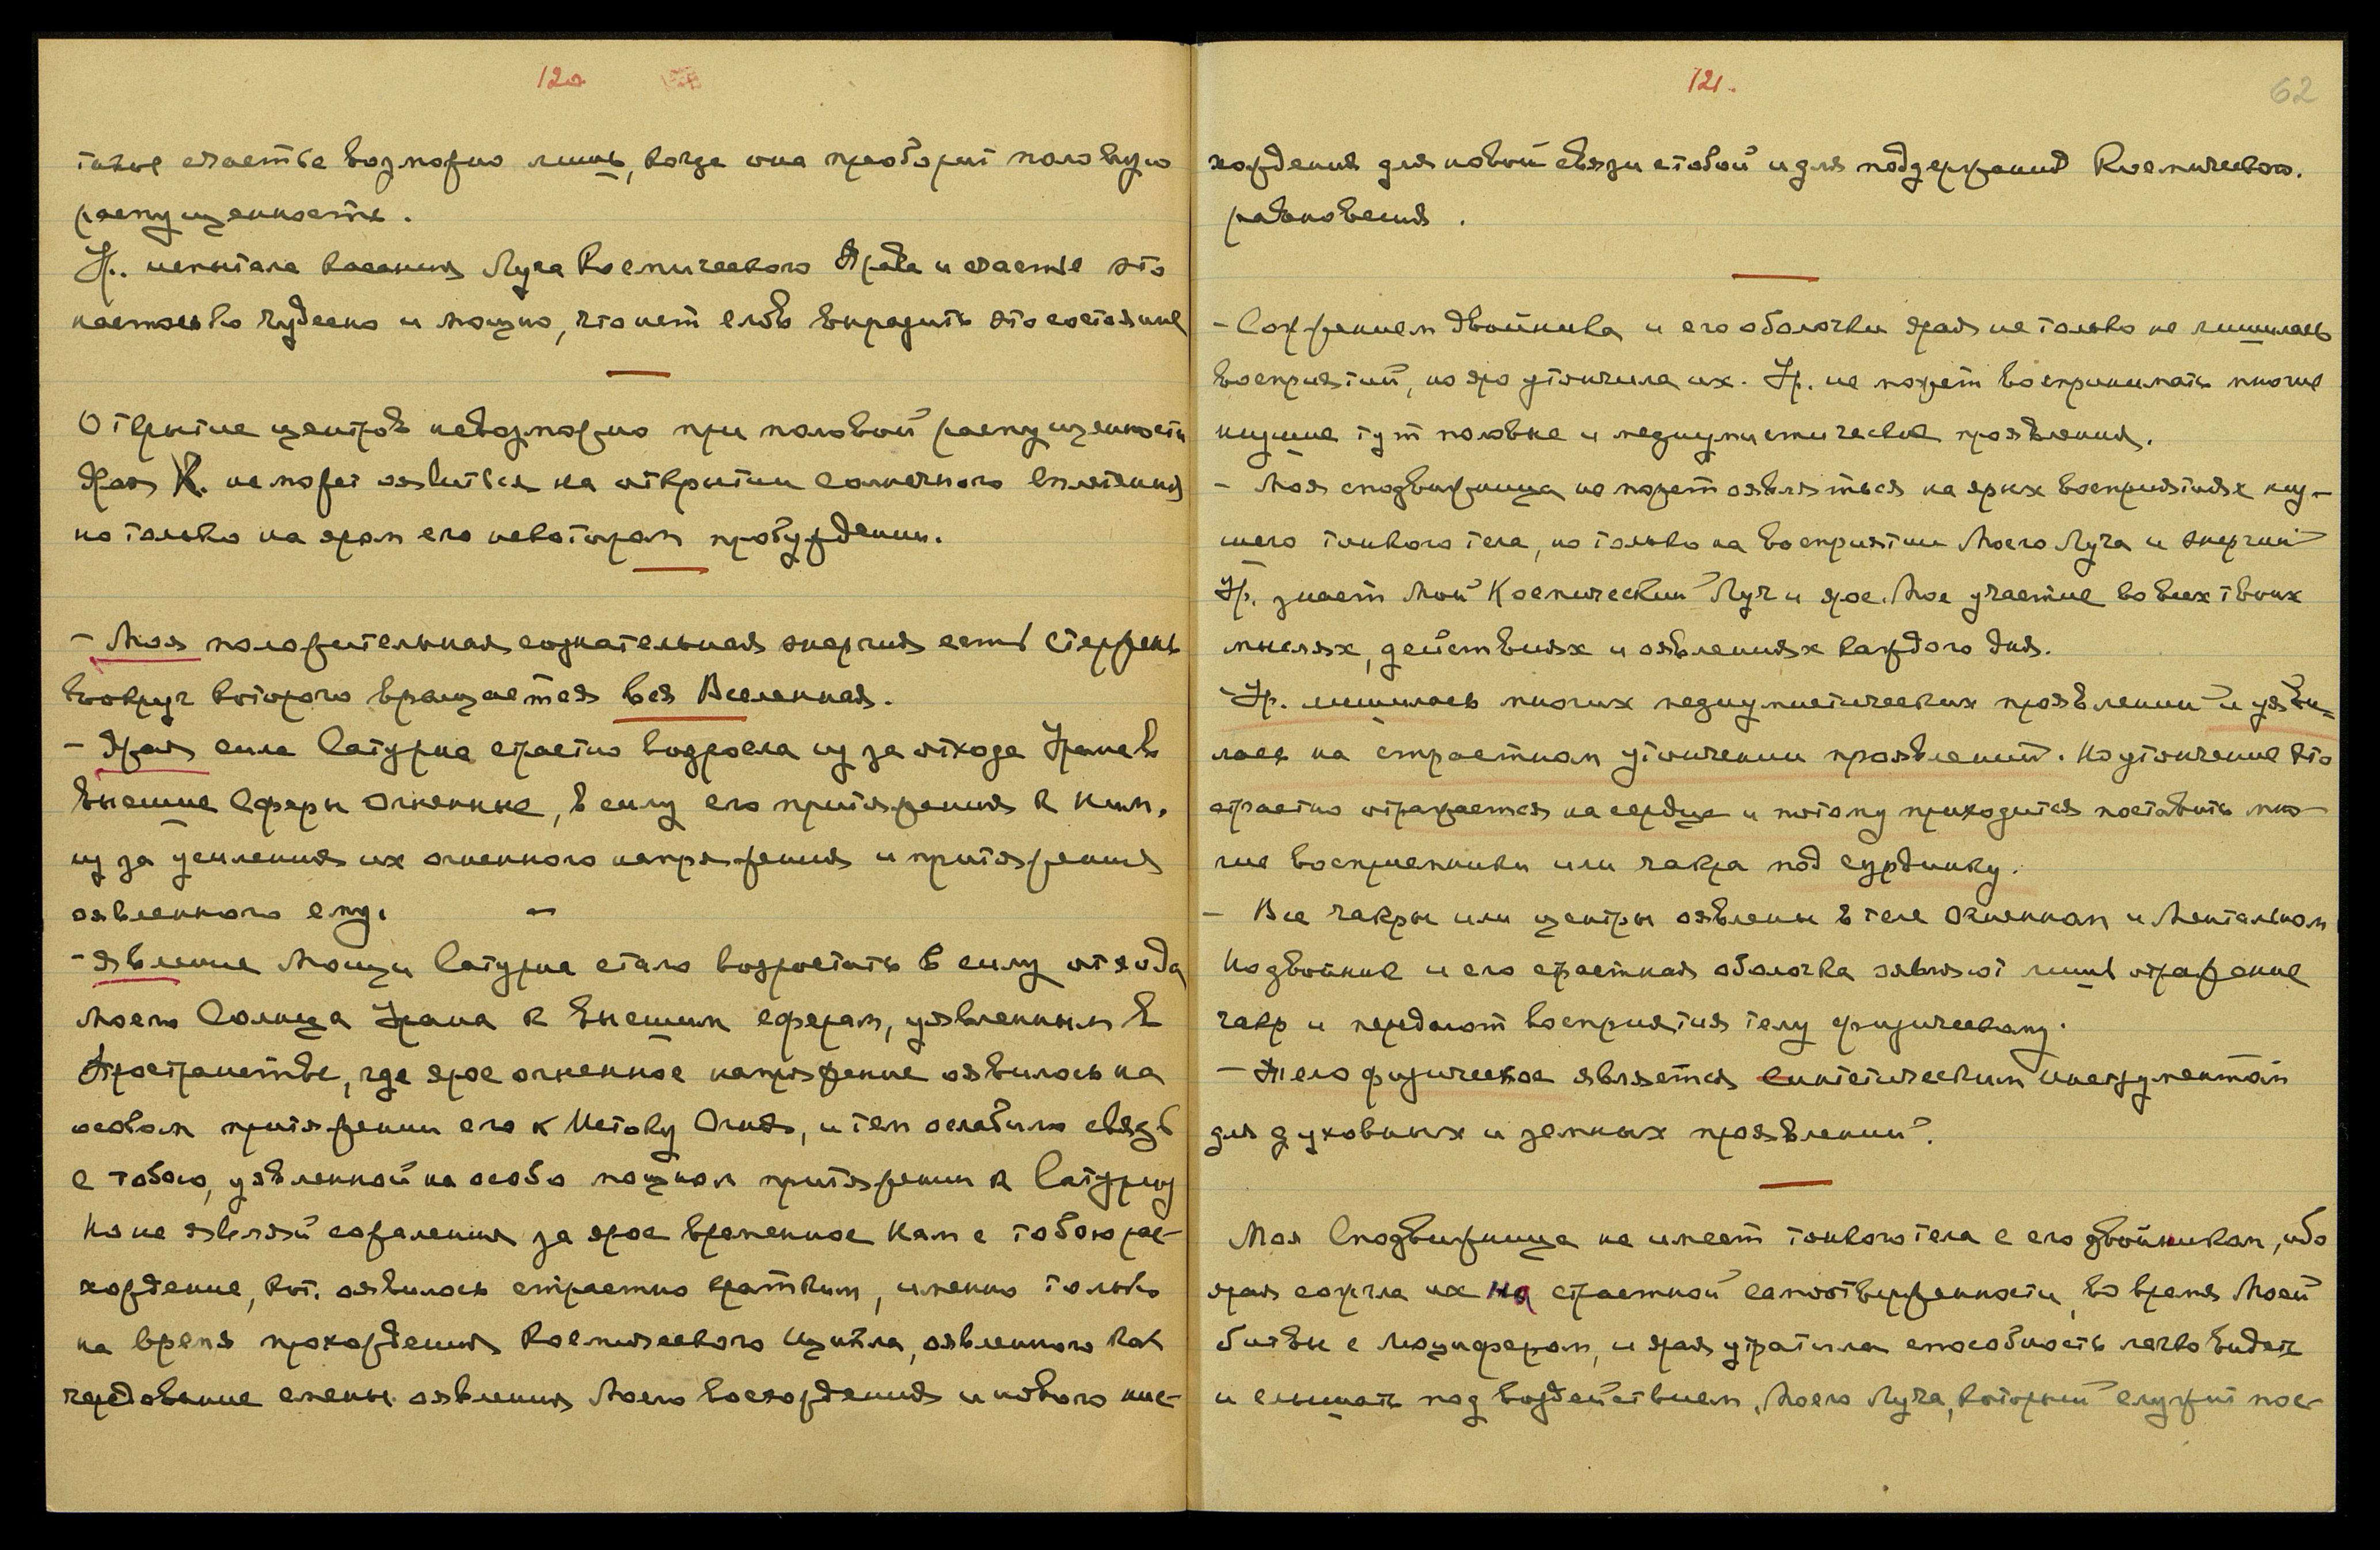 120
такое счастье возможно лишь, когда она преоборит половую
распущенность.
Ур. испытала касания Луча Космического Права и счастье это
настолько чудесно и мощно, что нет слов выразить это состояние
Открытие центров невозможно при половой распущенности
Ярая К. не может явиться на открытии солнечного сплетения
но только на яром его некотором пробуждении.
- Моя положительная сознательная энергия есть стержень
вокруг которого вращается вся Вселенная.
- Ярая сила Сатурна страстно возросла из за отхода Урана в
высшие Сферы Огненные, в силу его притяжения к ним,
из за усиления их огненного напряжения и притяжения
оявленного ему. -
- Явление Мощи Сатурна стало возрастать в силу отхода
Моего Солнца Урана к высшим сферам, уявленным в
Пространстве, где ярое огненное напряжение оявилось на
особом притяжении его к Истоку Огня, и тем ослабило связь
с тобою, уявленной на особо мощном притяжении к Сатурну
Но не являй сожаления за ярое временное Нам с тобою рас-
хождение, кот. оявилось страстно кратким, именно только
на время прохождения Космического Цикла, оявленного как
чередование смены оявления Моего восхождения и нового нис-
121.
62
хождения для новой связи с тобой и для поддержания Космического.
равновесия.
- Сожжением двойника и его оболочки ярая не только не лишилась
восприятий, но яро утончила их. Ур. не может воспринимать многие
низшие тут половые и медиумистические проявления.
- Моя сподвижница не может оявляться на ярых восприятиях низ-
шего тонкого тела, но только на восприятии Моего Луча и энергий
Ур. знает Мой Космический Луч и ярое Мое участие во всех твоих
мыслях, действиях и оявлениях каждого дня.
- Ур. лишилась многих медиумистических проявлений и уяви-
лась на страстном утончении проявлений. Но утончение это
страстно отражается на сердце и потому приходится поставить мно-
гие восприемники или чакра под сурдинку.
- Все чакры или центры оявлены в теле Огненном и Ментальном
Но двойник и его страстная оболочка являют лишь отражение
чакр и передают восприятия телу физическому.
- Тело физическое является синтетическим инструментом
для духовных и земных проявлений.
Моя Сподвижница не имеет тонкого тела с его двойником, ибо
ярая сожгла их на страстной самоотверженности, во время Моей
битвы с Люцифером, и ярая утратила способность легко видеть
и слышать под воздействием Моего Луча, который служит пос-